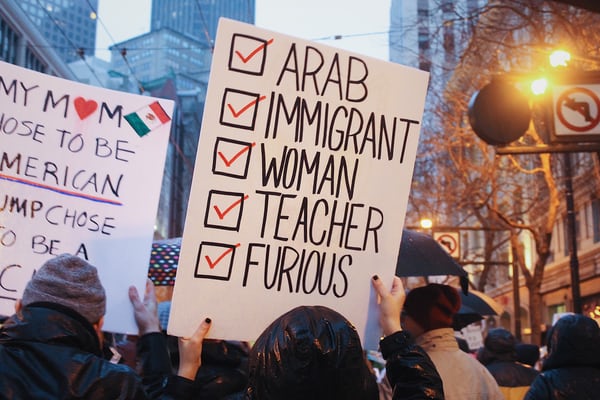 MY MOM
CHOSE TO BE
AMERICAN
TRUMP CHOSE
TO BE A
ARAB
IMMIGRANT
WOMAN
TEACHER
FURIOUS